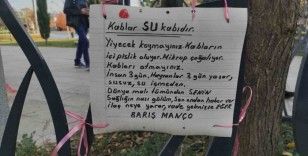 Kablar SU kabıdır.
Yiyecek koymayınız Kabların
içi pislik oluyor. Mikrop çoğalıyor.
Kabları atmayınız.
İnsan 3 gün, Hayvanlar 3 gün yaşar,
susuz, su içmeden,
Dünya malı tümünden SENİN
Sağlığın nasıl gülüm, Sen ondan haber ver
ilaç neye yarar, vade gelmişse EĞER
BARIŞ MANÇO